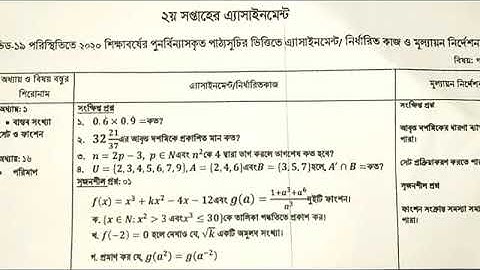 ২য় সপ্তাহের এ্যাসাইনমেন্ট
ভিড-১৯ পরিস্থিতিতে ২০২০ শিক্ষাবর্ষের পুনর্বিন্যাসকৃত পাঠ্যসূচির ভিত্তিতে এ্যাসাইনমেন্ট/ নির্ধারিত কাজ ও মূল্যায়ন নির্দেশন
বিষয়:
অধ্যায় ও বিষয় বস্তুর শিরোনাম
এ্যাসাইনমেন্ট/নির্ধারিতকাজ
মূল্যায়ন নির্দেশন
অধ্যায়: ১
• বাস্তব সংখ্যা
সেট ও ফাংশন
অধ্যায়: ১৬
• পরিমাপ
সংক্ষিপ্ত প্রশ্ন
১. 0.6 × 0.9 =কত?
২. 32 21/37 এর আবৃত্ত দশমিকে প্রকাশিত মান কত?
৩. n = 2p − 3, p ∈ N এবং n² কে 4 দ্বারা ভাগ করলে ভাগশেষ কত হবে?
৪. U = {2, 3, 4, 5, 6, 7, 9}, A = {2, 4, 6} এবং B = {3, 5, 7} হলে, A′ ∩ B =কত?
সৃজনশীল প্রশ্ন: ০১
f(x) = x³ + kx² − 4x − 12 এবং g(a) = (1+a³+a⁶)/a³ দুইটি ফাংশন।
ক. {x ∈ N: x² > 3 এবং x³ ≤ 30} কে তালিকা পদ্ধতিতে প্রকাশ কর।
খ. f(−2) = 0 হলে দেখাও যে, √k একটি অমূলদ সংখ্যা।
গ. প্রমাণ কর যে, g(a²) = g(a⁻²)
সংক্ষিপ্ত প্রশ্ন
আবৃত্ত দশমিকের ধারণা
পারা।
সেট প্রক্রিয়াকরণ করতে পারা
সৃজনশীল প্রশ্ন
ফাংশন সংক্রান্ত সমস্যা
পারা।